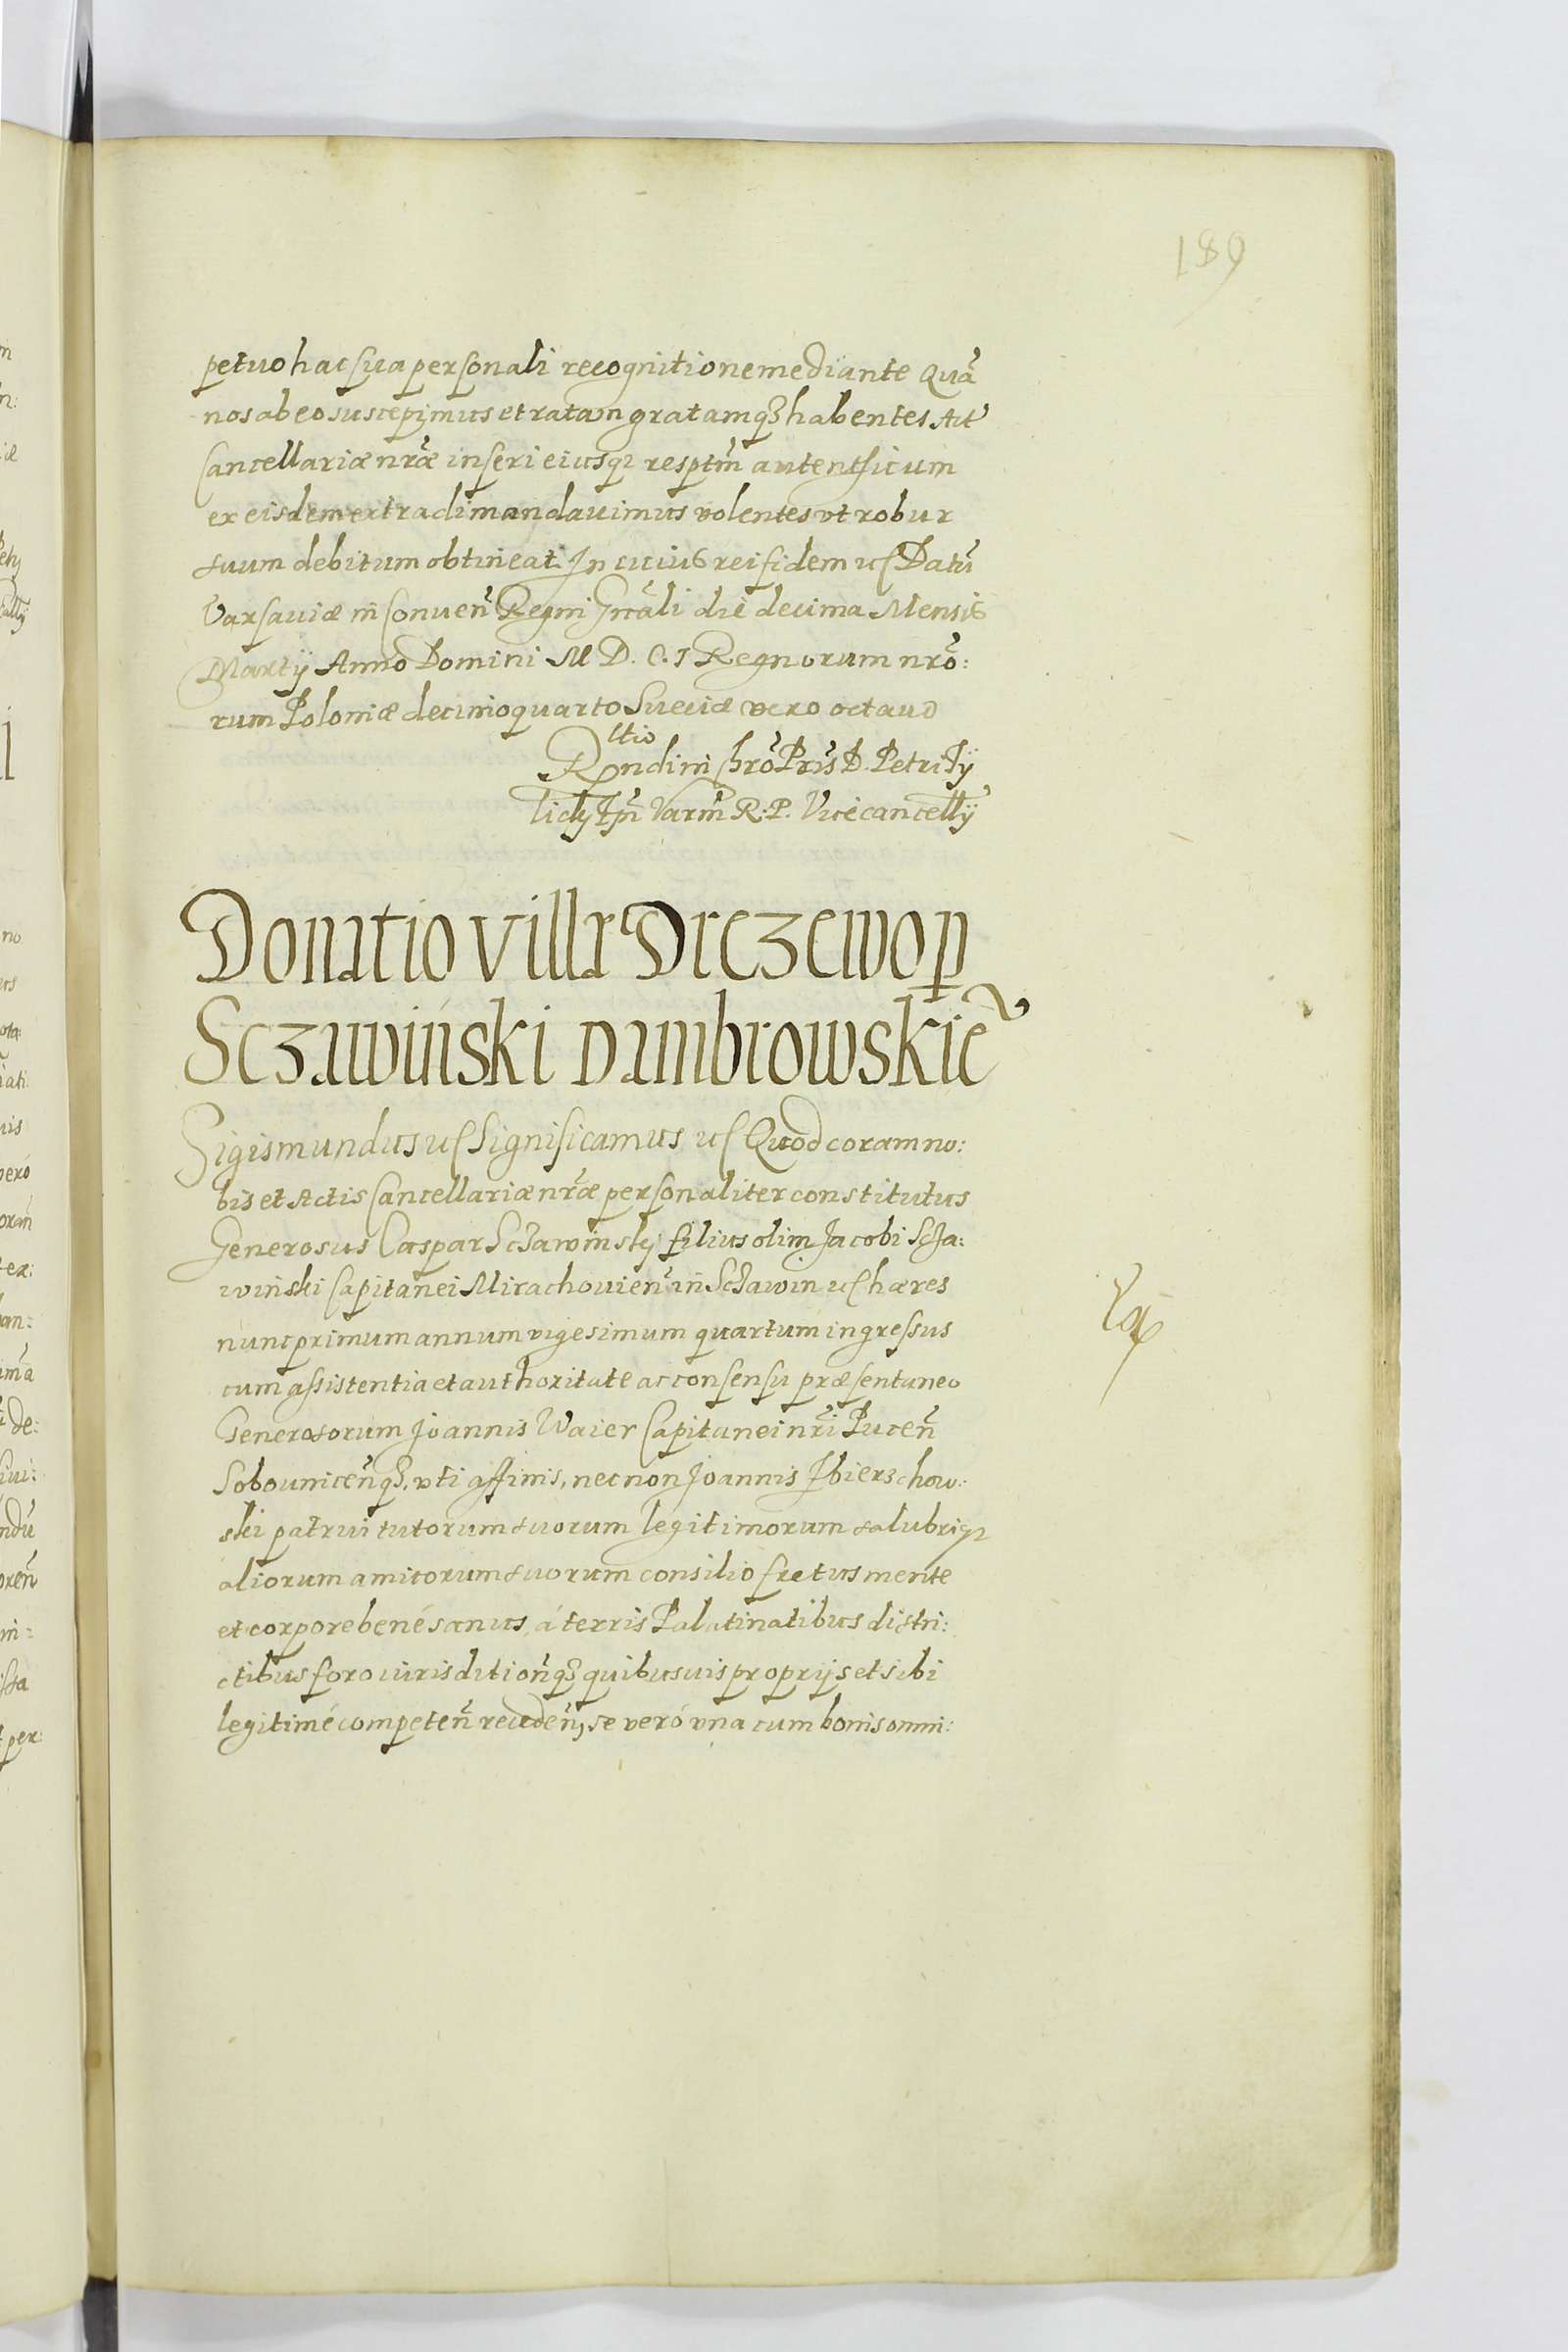 189
petuo hac sua personali recognitione mediante Quã
nos ab eo suscepimus et ratam gratamq3 habentes Act̃
Cancellariæ nr̃æ inseri eiusq3 resptm̃ autenthicum
ex eisdem extradi mandauimus volentes vt robur
suum debitum obtineat. In cuius rei fidem uc Datũ
Varsauiæ in Conuen̄ Regni Gnãli die decima Mensis
Martij Anno Domini M D. C. I Regnorum nrõ:
rum Poloniæ decimoquarto Sueciæ vero octauo
Rltio
Rndi in Chrõ Pris̃ D. Petri Ty
licky Ep̃i Varm̃ R. P. Vicecancellỹ
Donatio villæ Drezewo p
Sczawiński Dambrowskie͂
Sigismundus uc Significamus uc Quod coram no:
bis et Actis Cancellariæ nr̃æ personaliter constitutus
Generosus Caspar Sczawinsky filius olim Jacobi Scza:
wiński Capitanei Mirachouien̄ in Sczawin uc hæres
nunc primum annum vigesimum quartum ingressus
cum assistentia et authoritate ac consensu præsentaneo
Generosorum Joannis Waier Capitanei nr̃i Pucen̄
Sobouuicen̄q3, vti affinis, necnon Joannis Zbierzchow:
ski patrui tutorum suorum legitimorum salubriq3
aliorum amicorum suorum consilio fretus mente
et corpore bené sanus, á terris Palatinatibus distri:
ctibus foro iurisdition̄q3 quibusuis proprijs et sibi
legitimé competen̄ receden̄, se veró vna cum bonis omni: